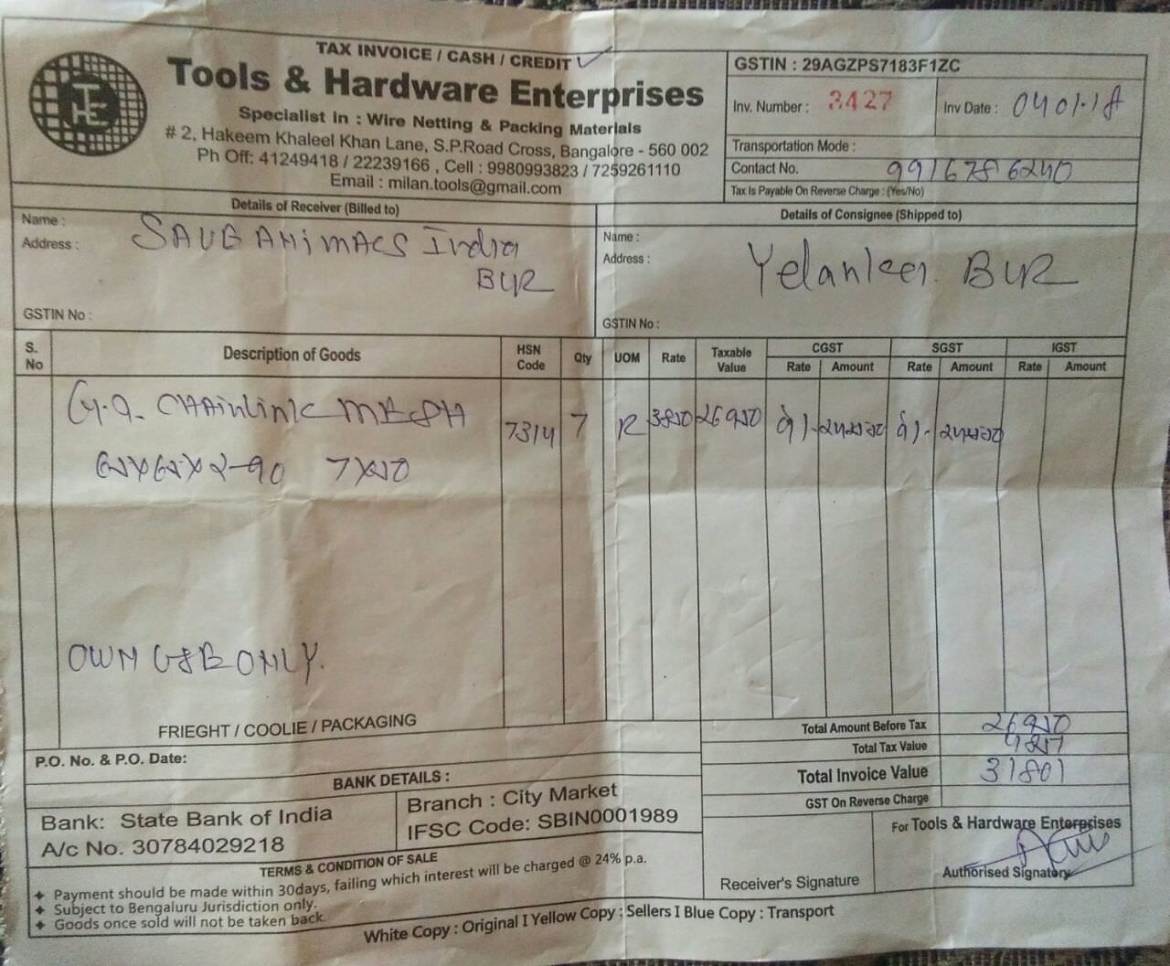 TAX INVOICE / CASH / CREDIT ✓
THE
Tools & Hardware Enterprises
Specialist in : Wire Netting & Packing Materials
# 2, Hakeem Khaleel Khan Lane, S.P.Road Cross, Bangalore - 560 002
Ph Off: 41249418 / 22239166 , Cell : 9980993823 / 7259261110
Email : milan.tools@gmail.com
GSTIN : 29AGZPS7183F1ZC
Inv. Number : 3427 Inv Date : 04 01.18
Transportation Mode :
Contact No. 9916786240
Tax Is Payable On Reverse Charge : (Yes/No)
Details of Receiver (Billed to)
Name :
Address : India
GSTIN No :
Details of Consignee (Shipped to)
Name :
Address :
GSTIN No :
S. No Description of Goods HSN Code Qty UOM Rate Taxable Value CGST SGST IGST
Rate Amount Rate Amount Rate Amount
G.I. CHAiNLiNK MESH 7314 7 R 3850 26950 9%. 9%.
OWN ONLY.
FRIEGHT / COOLIE / PACKAGING
Total Amount Before Tax 26950
Total Tax Value
Total Invoice Value 31801
GST On Reverse Charge
P.O. No. & P.O. Date:
BANK DETAILS :
Bank: State Bank of India
A/c No. 30784029218
Branch : City Market
IFSC Code: SBIN0001989
TERMS & CONDITION OF SALE
Payment should be made within 30days, failing which interest will be charged @ 24% p.a.
Subject to Bengaluru Jurisdiction only.
Goods once sold will not be taken back.
Receiver's Signature
For Tools & Hardware Enterprises
Authorised Signatory
White Copy : Original I Yellow Copy : Sellers I Blue Copy : Transport